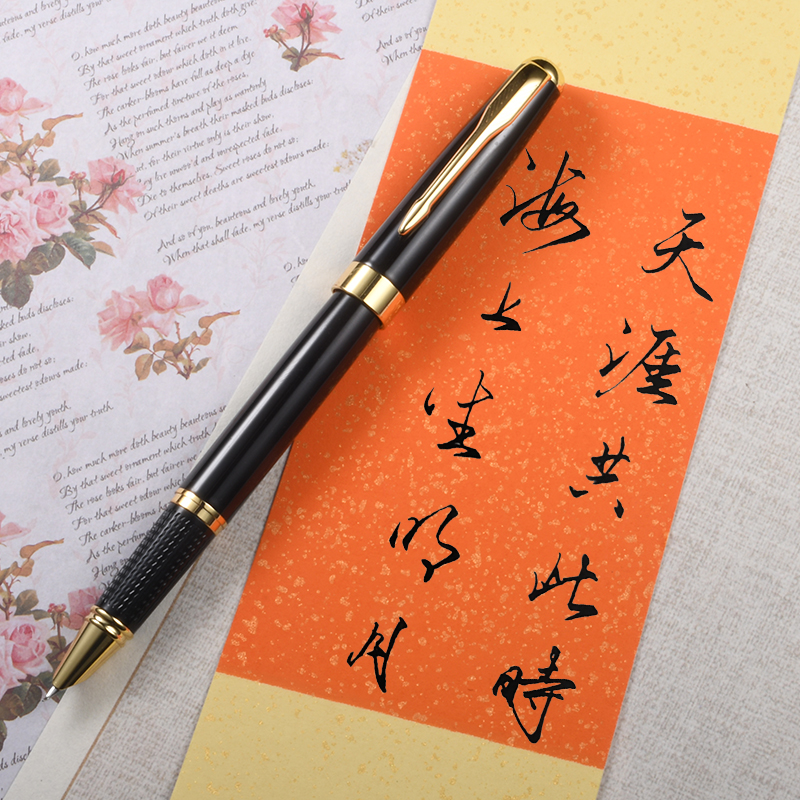 海上生明月
天涯共此時
my verse distills your truth
O, how much more doth beauty beauteous
By that sweet ornament which truth doth give.
The rose looks fair, but fairer we it deem
For that sweet odour which doth in it live.
The canker-blooms have full as deep a dye
As the perfumed tincture of the roses,
Hang on such thorns and play as wantonly
When summer's breath their masked buds discloses:
for their virtue only is their show,
live unwoo'd and unrespected fade,
Die to themselves. Sweet roses do not so;
Of their sweet deaths are sweetest odours made:
And so of you, beauteous and lovely youth,
When that shall fade, my verse distills your truth
buds discloses:
show,
fade,
roses do not so;
sweetest odours made:
and lovely youth,
my verse distills your truth
O, how much more doth beauty beauteous
By that sweet ornament which truth
The rose looks fair, but fairer
For that sweet odour which
The canker-blooms have
As the perfumed
Hang